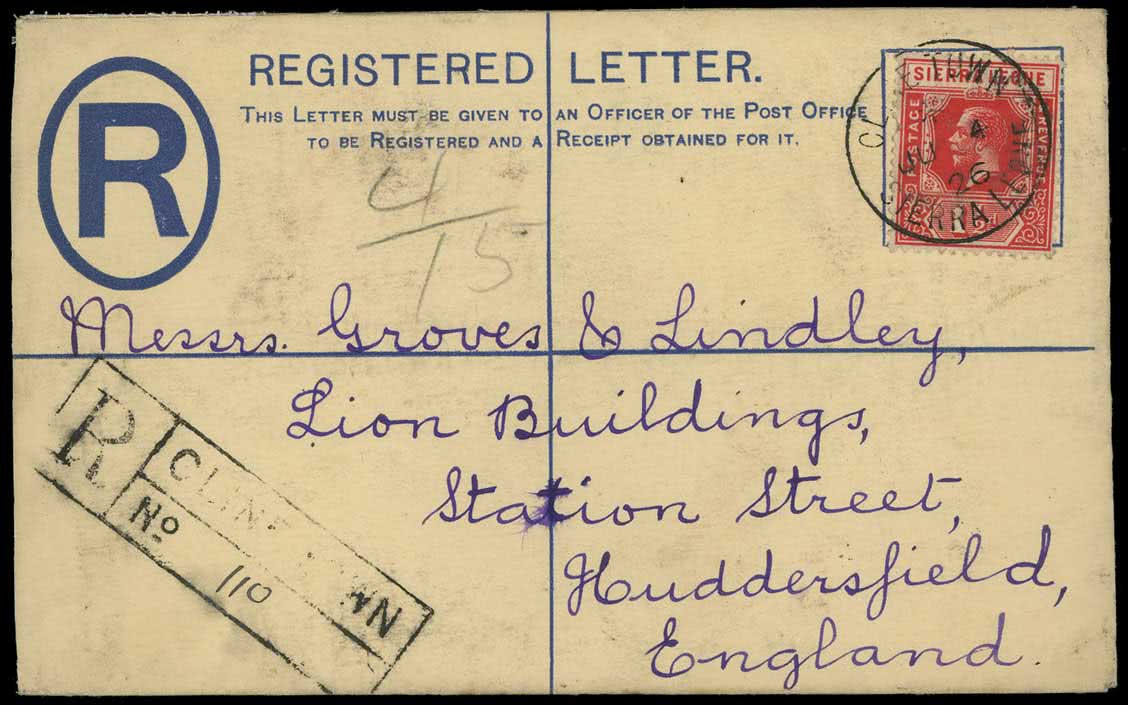 R
REGISTERED LETTER.
THIS LETTER MUST BE GIVEN TO AN OFFICER OF THE POST OFFICE
TO BE REGISTERED AND A RECEIPT OBTAINED FOR IT.
4/15
SIERRA LEONE
POSTAGE
REVENUE
TOWN
4
26
SIERRA LEONE
Messrs. Groves & Lindley,
Lion Buildings,
Station Street,
Huddersfield,
England.
R
No 110